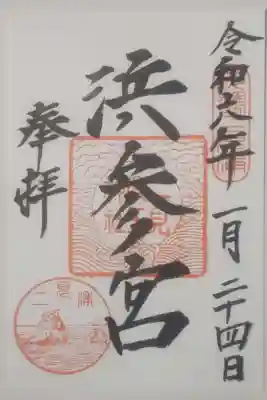 令和六年 一月 二十四日
浜参宮
奉拝
二見浦